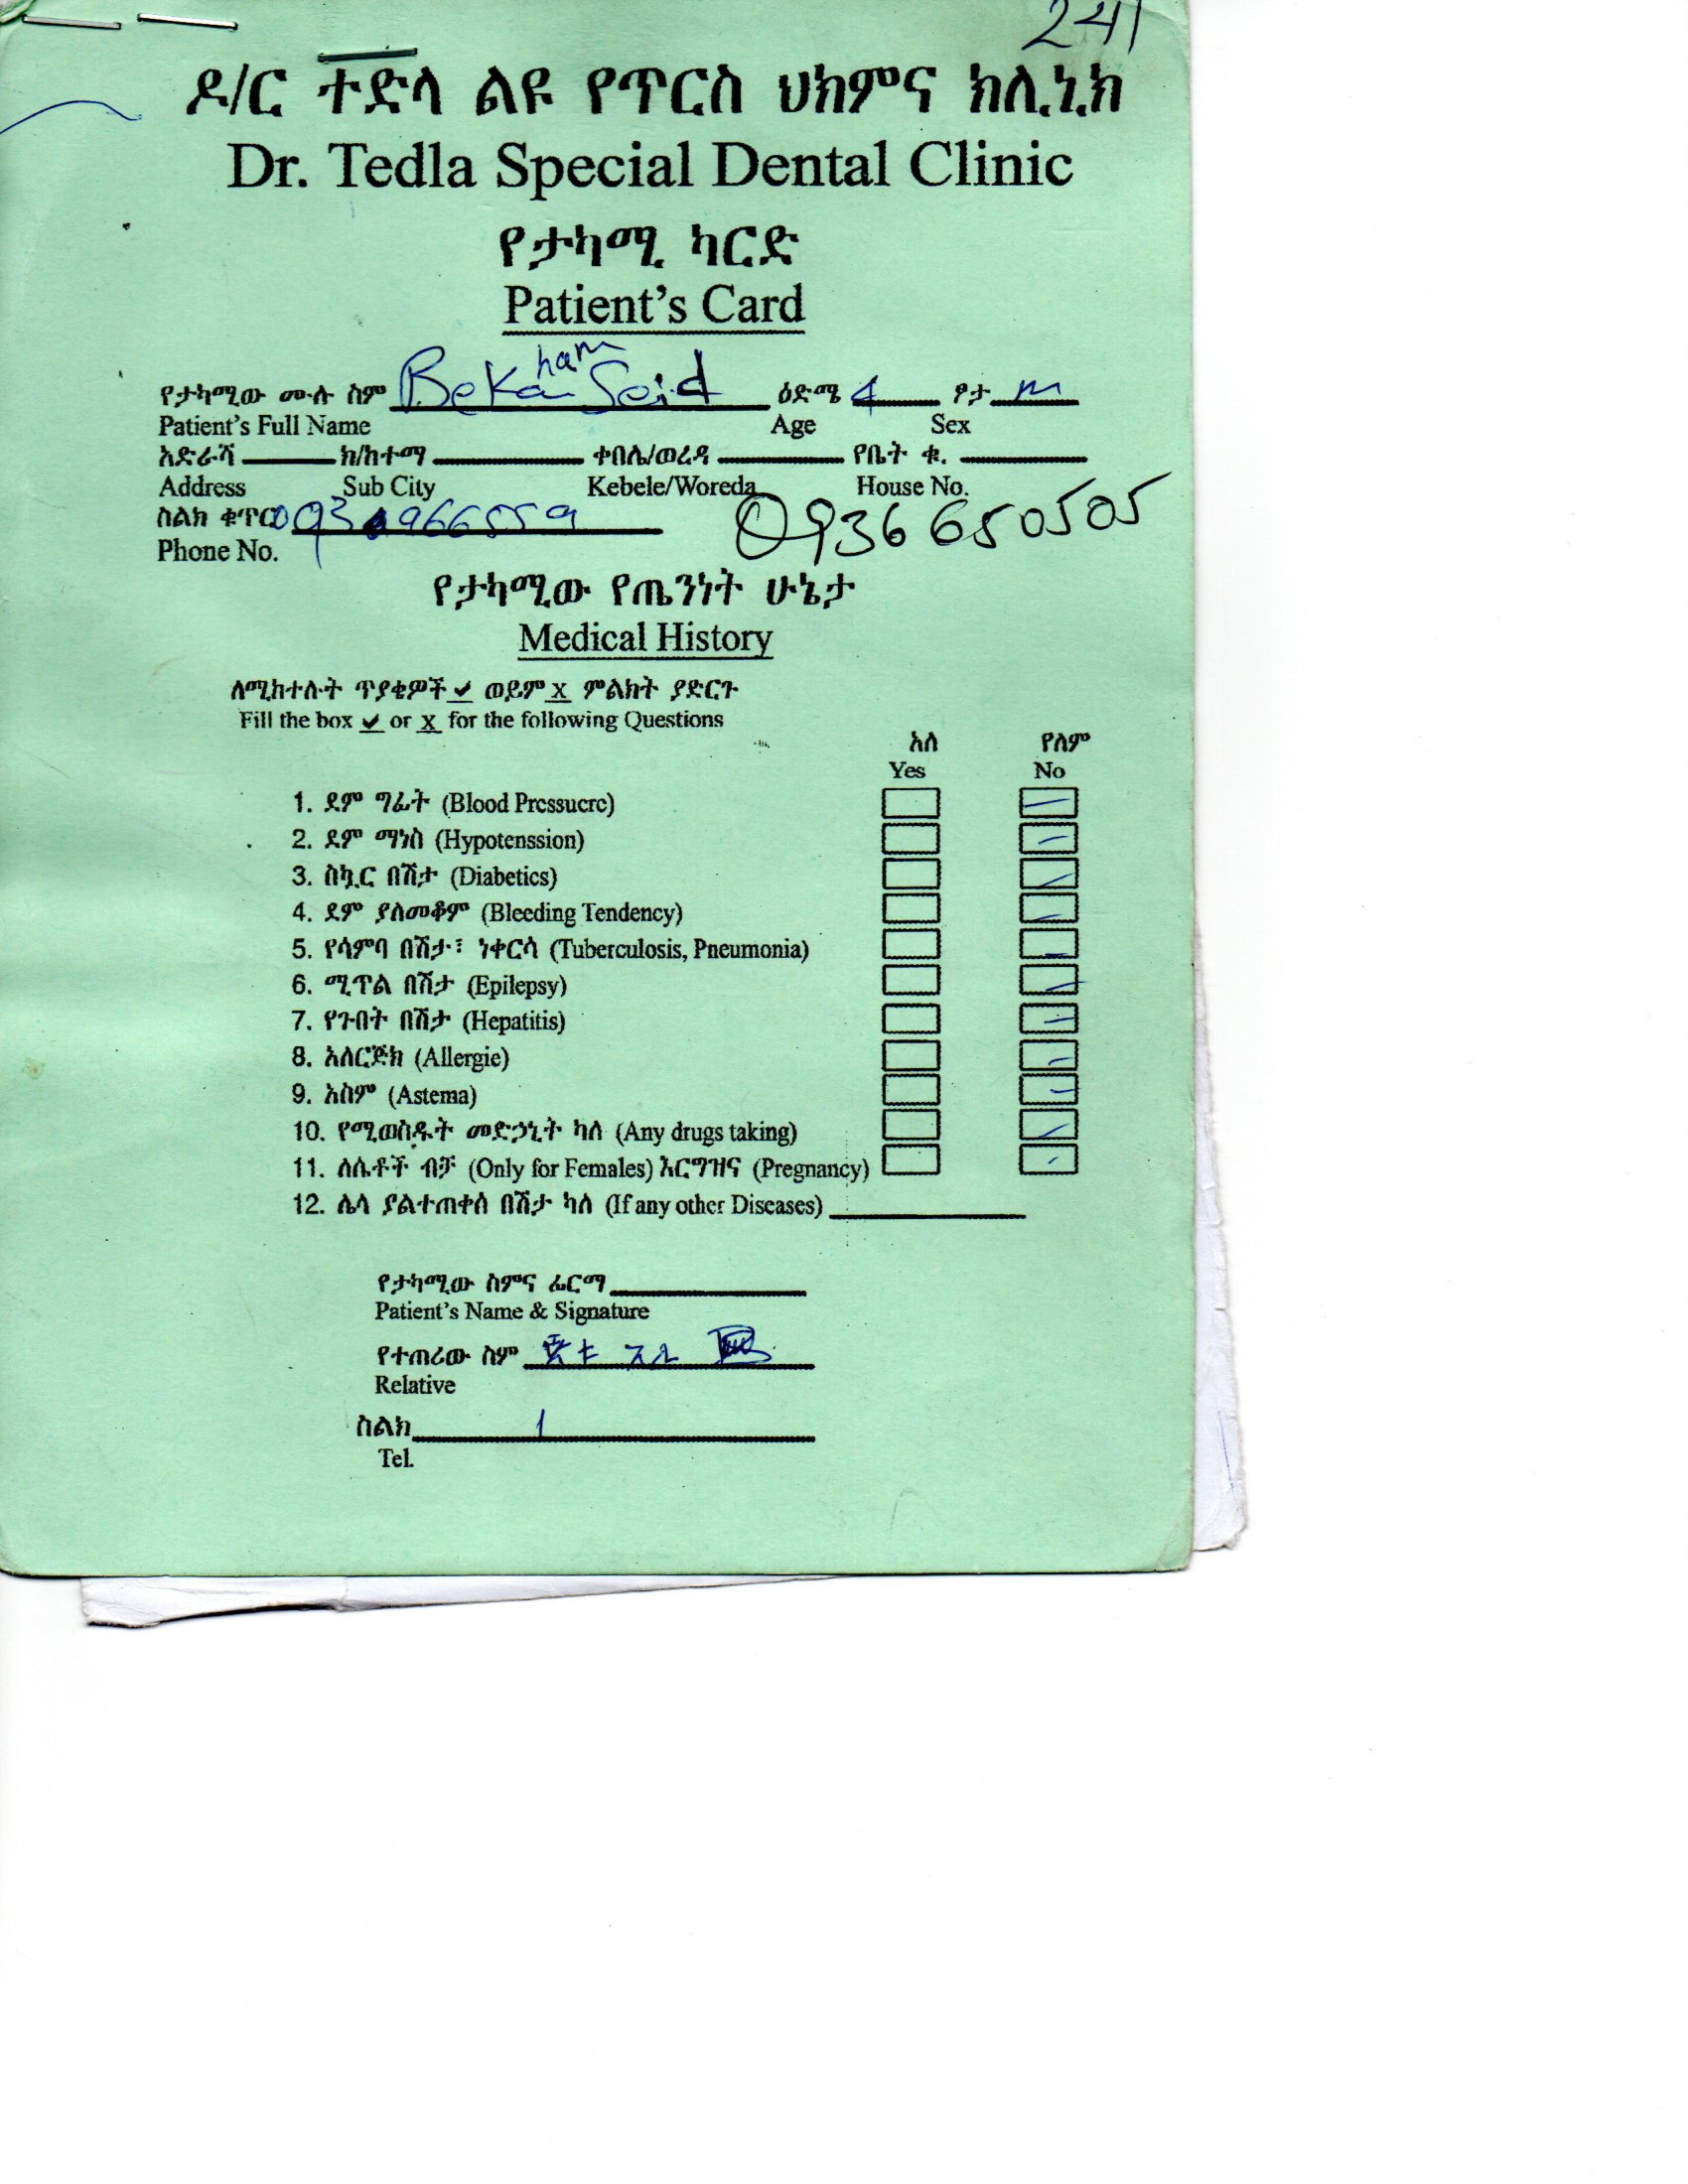 241
ዶ/ር ተድላ ልዩ የጥርስ ህክምና ክሊኒክ
Dr. Tedla Special Dental Clinic
የታካሚ ካርድ
Patient's Card
ham
የታካሚው ሙሉ ስም Beka Seid ዕድሜ 4 ፆታ m
Patient's Full Name Age Sex
አድራሻ ክ/ከተማ ቀበሌ/ወረዳ የቤት ቁ.
Address Sub City Kebele/Woreda House No.
ስልክ ቁጥር 0936650505
Phone No.
የታካሚው የጤንነት ሁኔታ
Medical History
ለሚከተሉት ጥያቄዎች ✓ ወይም x ምልክት ያድርጉ
Fill the box ✓ or x for the following Questions
አለ የለም
Yes No
1. ደም ግፊት (Blood Pressucre)
2. ደም ማነስ (Hypotenssion)
3. ስኳር በሽታ (Diabetics)
4. ደም ያለመቆም (Bleeding Tendency)
5. የሳምባ በሽታ፣ ነቀርሳ (Tuberculosis, Pneumonia)
6. ሚጥል በሽታ (Epilepsy)
7. የጉበት በሽታ (Hepatitis)
8. አለርጅክ (Allergie)
9. አስም (Astema)
10. የሚወስዱት መድኃኒት ካለ (Any drugs taking)
11. ለሴቶች ብቻ (Only for Females) እርግዝና (Pregnancy)
12. ሌላ ያልተጠቀሰ በሽታ ካለ (If any other Diseases)
የታካሚው ስምና ፊርማ
Patient's Name & Signature
የተጠሪው ስም
Relative
ስልክ
Tel.